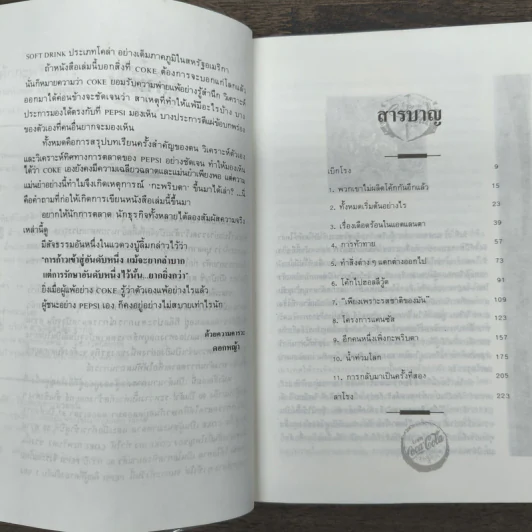 SOFT DRINK ประเภทโคล่า อย่างเต็มภาคภูมิในสหรัฐอเมริกา
ถ้าหนังสือเล่มนี้บอกสิ่งที่ COKE ต้องการจะบอกแก่โลกแล้ว
นั่นก็หมายความว่า COKE ยอมรับความพ่ายแพ้อย่างรู้สำนึก วิเคราะห์
ออกมาได้ค่อนข้างจะชัดเจนว่า สาเหตุที่ทำให้แพ้มีอะไรบ้าง บาง
ประการมองได้ตรงกับที่ PEPSI มองเห็น บางประการตีแผ่ข้อบกพร่อง
ของตัวเองที่คนอื่นยากจะมองเห็น
ทั้งหมดคือการสรุปบทเรียนครั้งสำคัญของตน วิเคราะห์ตัวเอง
และวิเคราะห์ทิศทางการตลาดของ PEPSI อย่างชัดเจน ทำให้มองเห็น
ได้ว่า COKE เองยังคงมีความเฉลียวฉลาดและแม่นยำเพียงพอ แต่ความ
แม่นยำอย่างนี้ทำไมจึงเกิดเหตุการณ์ 'กะพริบตา' ขึ้นมาได้เล่า? ...นี่
คือคำถามที่ก่อให้เกิดการเขียนหนังสือเล่มนี้ขึ้นมา
อยากให้นักการตลาด นักธุรกิจทั้งหลายได้ลองสัมผัสความจริง
เหล่านี้ดู
มีสัจธรรมอันหนึ่งในแวดวงบู๊ลิ้มกล่าวไว้ว่า
"การก้าวเข้าสู่อันดับหนึ่ง แม้จะยากลำบาก
แต่การรักษาอันดับหนึ่งไว้นั้น...ยากยิ่งกว่า"
ยิ่งเมื่อผู้แพ้อย่าง COKE รู้ว่าตัวเองแพ้อย่างไรแล้ว
ผู้ชนะอย่าง PEPSI เอง ก็คงอยู่อย่างไม่สบายเท่าไรนัก
ด้วยความคารวะ
ดอกหญ้า
สารบาญ
เบิกโรง 9
1. พวกเขาไม่ผลิตโค้กกันอีกแล้ว 15
2. ทั้งหมดเริ่มต้นอย่างไร 23
3. เรื่องเดือดร้อนในแอตแลนตา 39
4. การท้าทาย 57
5. ทำสิ่งต่าง ๆ แตกต่างออกไป 73
6. โค้กไปฮอลลีวู้ด 91
7. "เพียงเพราะรสชาติของมัน" 107
8. โครงการแคนซัส 125
9. อีกคนหนึ่งเพิ่งกะพริบตา 157
10. น้ำท่วมโลก 175
11. การกลับมาเป็นครั้งที่สอง 205
ลาโรง 223
Coca-Cola